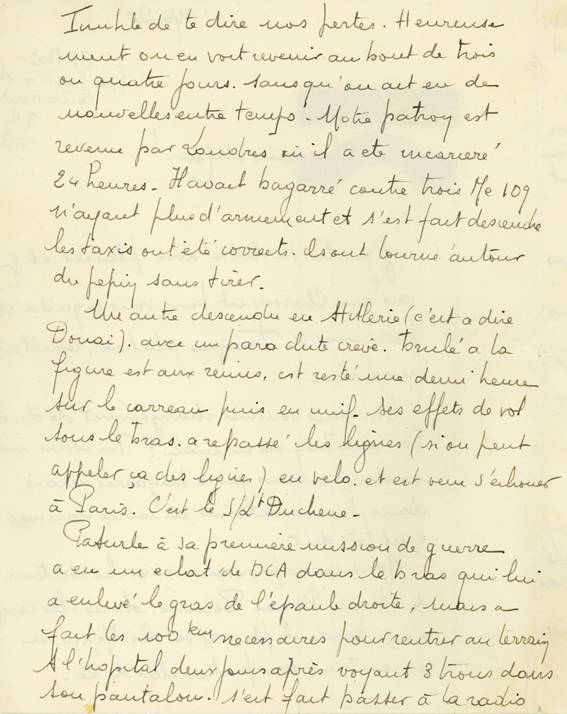 Inutile de te dire nos pertes. Heureuse
ment on en voit revenir au bout de trois
ou quatre jours. sans qu'on ait eu de
nouvelles entre temps. Notre patron est
revenu par Londres où il a été incarcéré
24 heures. Il avait bagarré contre trois Me 109
n'ayant plus d'armement et s'est fait descendre
les taxis ont été corrects. ils ont tourné autour
du pépin sans tirer.
Un autre descendu en Hitlerie (c'est a dire
Douai). avec un parachute crevé. brulé a la
figure est aux reins, est resté une demi heure
sur le carreau puis en civil. ses effets de vol
sous le bras. a repassé les lignes (si on peut
appeler ça des lignes) en velo. et est venu s'échouer
à Paris. C'est le S/Lt Duchene -
Pasurle à sa première mission de guerre
a eu un eclat de DCA dans le bras qui lui
a enlevé le gras de l'épaule droite, mais a
fait les 100 km nécessaires pour rentrer au terrain
A l'hopital deux jours après voyant 3 trous dans
son pantalon. s'est fait passer à la radio